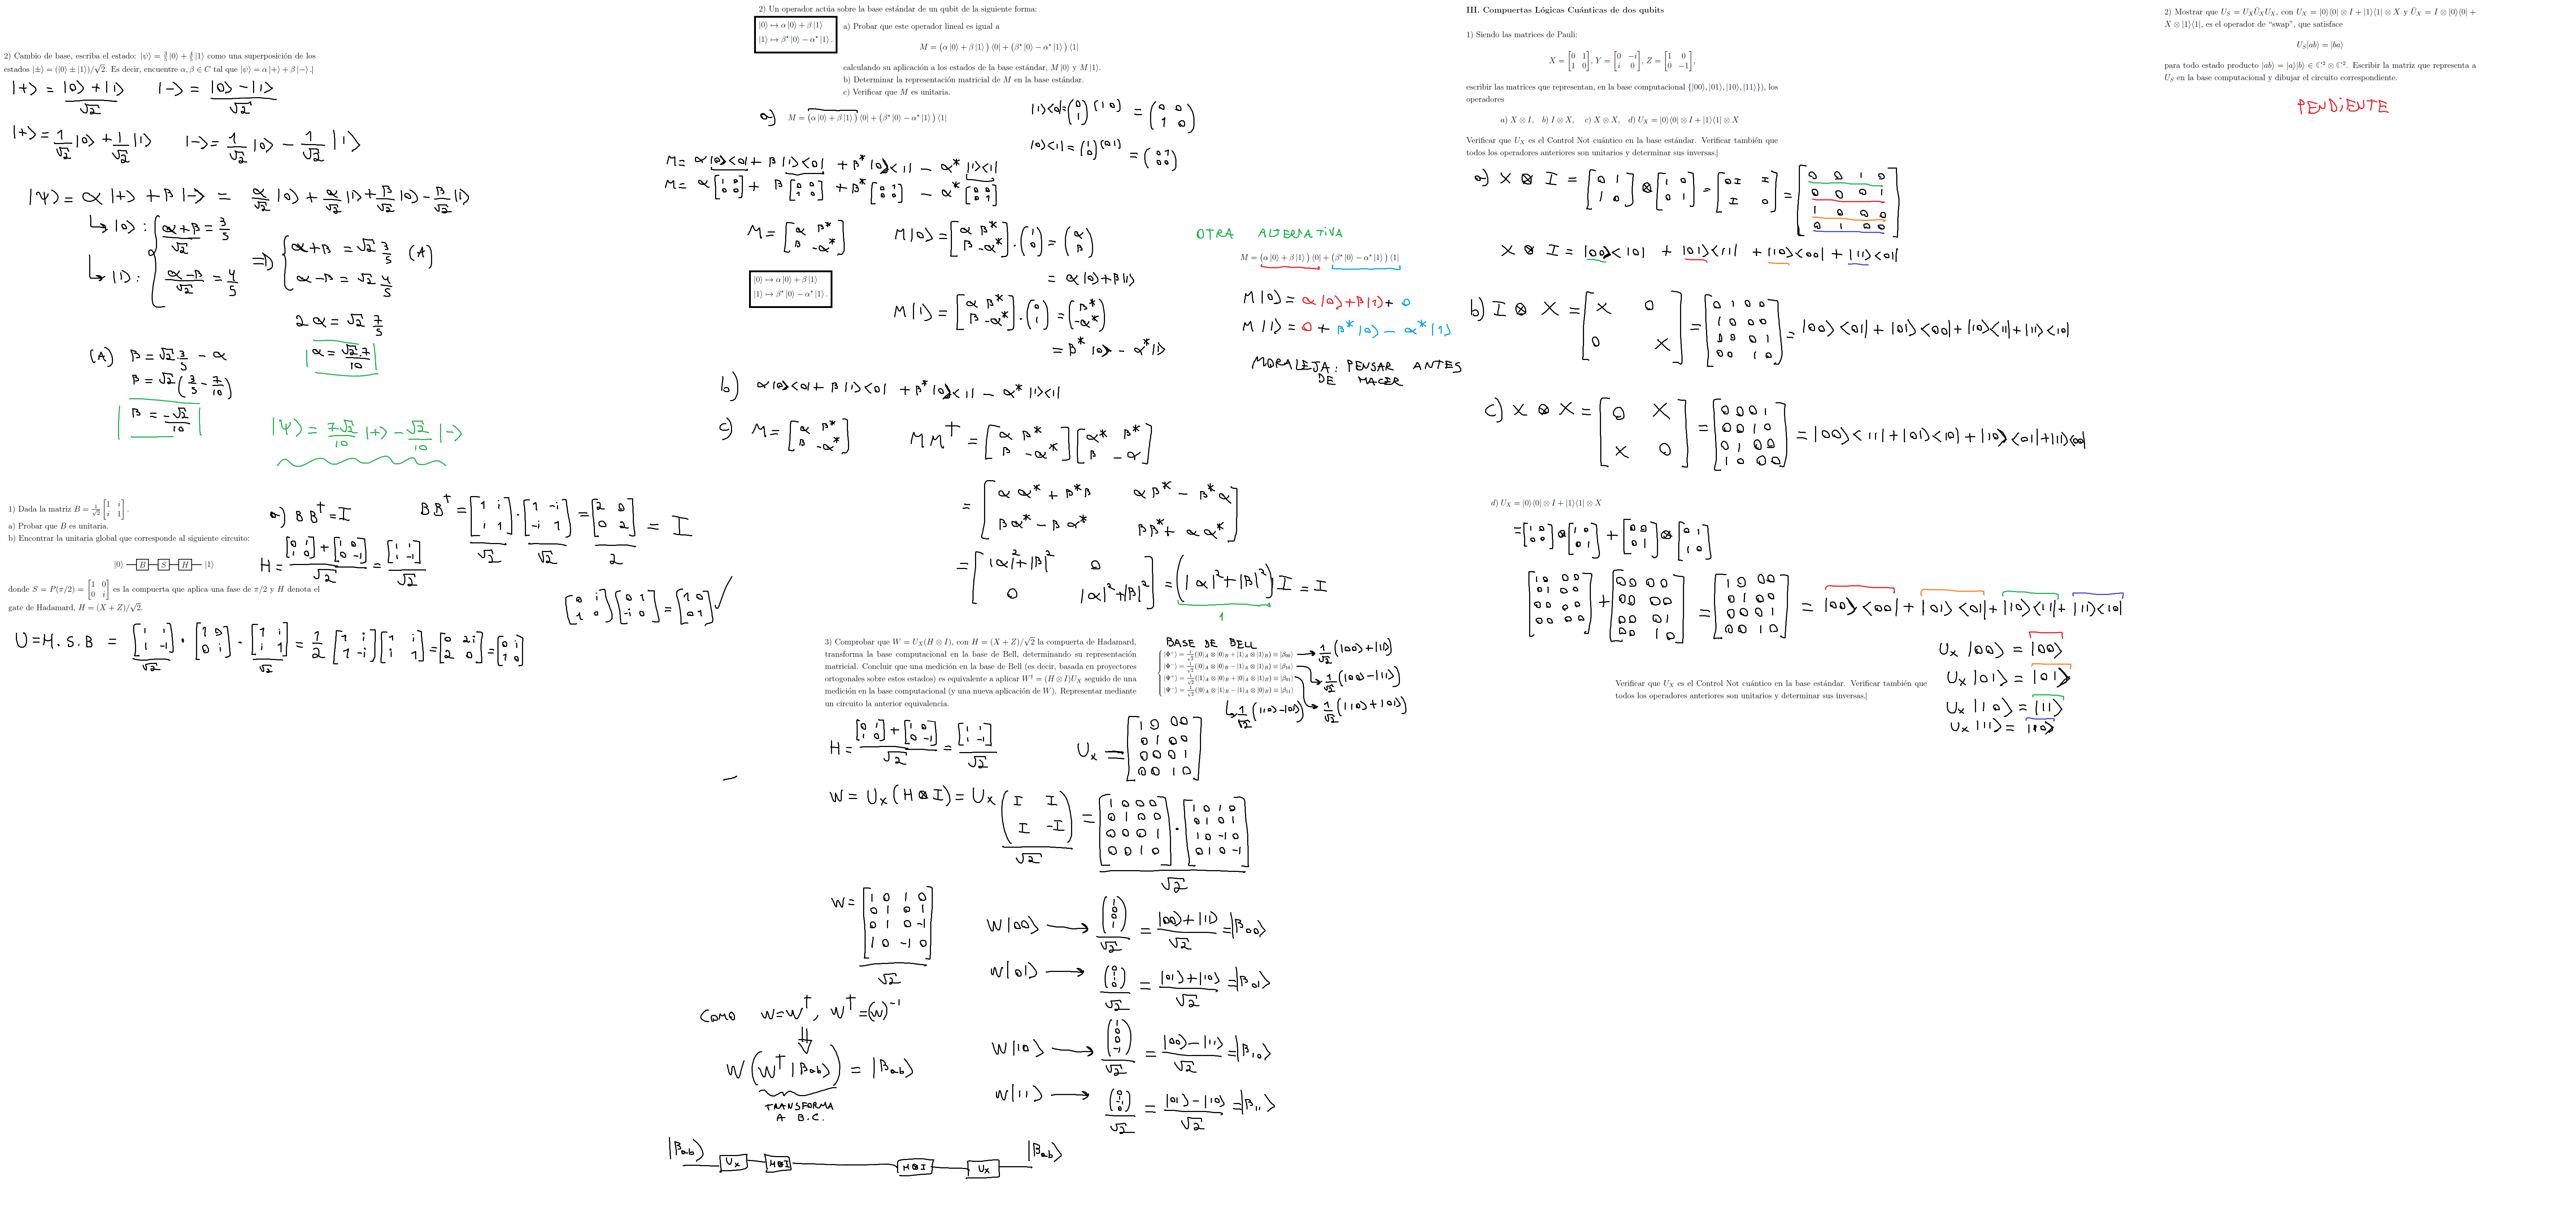 2) Cambio de base, escriba el estado: |ψ⟩ = 3/5 |0⟩ + 4/5 |1⟩ como una superposición de los
estados |±⟩ = (|0⟩ ± |1⟩)/√2. Es decir, encuentre α, β ∈ C tal que |ψ⟩ = α |+⟩ + β |−⟩.
|+⟩ = (|0⟩ + |1⟩)/√2   |−⟩ = (|0⟩ − |1⟩)/√2
|+⟩ = 1/√2 |0⟩ + 1/√2 |1⟩   |−⟩ = 1/√2 |0⟩ − 1/√2 |1⟩
|Ψ⟩ = α |+⟩ + β |−⟩ = α/√2 |0⟩ + α/√2 |1⟩ + β/√2 |0⟩ − β/√2 |1⟩
↳ |0⟩ : (α+β)/√2 = 3/5 ⇒ α+β = √2 3/5 (A)
↳ |1⟩ : (α−β)/√2 = 4/5   α−β = √2 4/5
2 α = √2 7/5
α = √2·7/10
(A) β = √2 3/5 − α
β = √2 (3/5 − 7/10)
β = −√2/10
|Ψ⟩ = 7√2/10 |+⟩ − √2/10 |−⟩
1) Dada la matriz B = 1/√2 [1 i; i 1].
a) Probar que B es unitaria.
b) Encontrar la unitaria global que corresponde al siguiente circuito:
|0⟩ B S H |1⟩
donde S = P(π/2) = [1 0; 0 i] es la compuerta que aplica una fase de π/2 y H denota el
gate de Hadamard, H = (X + Z)/√2.
a) B B† = I
B B† = [1 i; i 1]/√2 · [1 -i; -i 1]/√2 = [2 0; 0 2]/2 = I
H = ([0 1; 1 0] + [1 0; 0 -1])/√2 = [1 1; 1 -1]/√2
[0 i; 1 0] [0 1; -i 0] = [1 0; 0 1] ✓
U = H.S.B = [1 1; 1 -1]/√2 · [1 0; 0 i] · [1 i; i 1]/√2 = 1/2 [1 i; 1 -i] [1 i; i 1] = [0 2i; 2 0] = [0 i; 1 0]
2) Un operador actúa sobre la base estándar de un qubit de la siguiente forma:
|0⟩ ↦ α |0⟩ + β |1⟩
|1⟩ ↦ β* |0⟩ − α* |1⟩ .
a) Probar que este operador lineal es igual a
M = (α |0⟩ + β |1⟩) ⟨0| + (β* |0⟩ − α* |1⟩) ⟨1|
calculando su aplicación a los estados de la base estándar, M |0⟩ y M |1⟩.
b) Determinar la representación matricial de M en la base estándar.
c) Verificar que M es unitaria.
a) M = (α |0⟩ + β |1⟩) ⟨0| + (β* |0⟩ − α* |1⟩) ⟨1|
|1⟩<0| = (0 1) (1 0) = (0 0; 1 0)
|0⟩<1| = (1 0) (0 1) = (0 1; 0 0)
M = α |0⟩<0| + β |1⟩<0| + β* |0⟩<1| − α* |1⟩<1|
M = α [1 0; 0 0] + β [0 0; 1 0] + β* [0 1; 0 0] − α* [0 0; 0 1]
M = [α β*; β -α*]   M |0⟩ = [α β*; β -α*] · (1 0) = (α β)
= α |0⟩ + β |1⟩
|0⟩ ↦ α |0⟩ + β |1⟩
|1⟩ ↦ β* |0⟩ − α* |1⟩ .
M |1⟩ = [α β*; β -α*] · (0 1) = (β* -α*)
= β* |0⟩ − α* |1⟩
OTRA ALTERNATIVA
M = (α |0⟩ + β |1⟩) ⟨0| + (β* |0⟩ − α* |1⟩) ⟨1|
M |0⟩ = α |0⟩ + β |1⟩ + 0
M |1⟩ = 0 + β* |0⟩ − α* |1⟩
MORALEJA: PENSAR ANTES
DE HACER
b) α|0⟩<0| + β |1⟩<0| + β* |0⟩<1| − α* |1⟩<1|
c) M = [α β*; β -α*]   M M† = [α β*; β -α*] [α* β*; β -α]
= [α α* + β*β   α β* − β*α; β α* − β α*   β β* + α α*]
= [|α|² + |β|² 0; 0 |α|² + |β|²] = (|α|² + |β|²) I = I
1
3) Comprobar que W = U_X(H ⊗ I), con H = (X + Z)/√2 la compuerta de Hadamard,
transforma la base computacional en la base de Bell, determinando su representación
matricial. Concluir que una medición en la base de Bell (es decir, basada en proyectores
ortogonales sobre estos estados) es equivalente a aplicar W† = (H ⊗ I)U_X seguido de una
medición en la base computacional (y una nueva aplicación de W). Representar mediante
un circuito la anterior equivalencia.
BASE DE BELL
|Φ⁺⟩ = 1/√2 (|0⟩_A ⊗ |0⟩_B + |1⟩_A ⊗ |1⟩_B) ≡ |β₀₀⟩ → 1/√2 (|00⟩ + |11⟩)
|Φ⁻⟩ = 1/√2 (|0⟩_A ⊗ |0⟩_B − |1⟩_A ⊗ |1⟩_B) ≡ |β₁₀⟩ → 1/√2 (|00⟩ − |11⟩)
|Ψ⁺⟩ = 1/√2 (|1⟩_A ⊗ |0⟩_B + |0⟩_A ⊗ |1⟩_B) ≡ |β₀₁⟩ → 1/√2 (|10⟩ + |01⟩)
↳ 1/√2 (|10⟩ − |01⟩)
H = ([0 1; 1 0] + [1 0; 0 -1])/√2 = [1 1; 1 -1]/√2   U_X = [1 0 0 0; 0 1 0 0; 0 0 0 1; 0 0 1 0]
W = U_X (H ⊗ I) = U_X (I I; I -I)/√2 = [1 0 0 0; 0 1 0 0; 0 0 0 1; 0 0 1 0] · [1 0 1 0; 0 1 0 1; 1 0 -1 0; 0 1 0 -1] /√2
W = [1 0 1 0; 0 1 0 1; 0 1 0 -1; 1 0 -1 0]/√2
W|00⟩ → (1 0 0 1)/√2 = (|00⟩ + |11⟩)/√2 = |β₀₀⟩
W|01⟩ → (0 1 1 0)/√2 = (|01⟩ + |10⟩)/√2 = |β₀₁⟩
W|10⟩ → (1 0 0 -1)/√2 = (|00⟩ − |11⟩)/√2 = |β₁₀⟩
W|11⟩ → (0 1 -1 0)/√2 = (|01⟩ − |10⟩)/√2 = |β₁₁⟩
COMO W=W†, W† = (W)⁻¹
⇓
W (W† |βab⟩) = |βab⟩
TRANSFORMA
A B.C.
|βab⟩ U_X H⊗I H⊗I U_X |βab⟩
III. Compuertas Lógicas Cuánticas de dos qubits
1) Siendo las matrices de Pauli:
X = [0 1; 1 0], Y = [0 −i; i 0], Z = [1 0; 0 −1],
escribir las matrices que representan, en la base computacional {|00⟩, |01⟩, |10⟩, |11⟩}), los
operadores
a) X ⊗ I, b) I ⊗ X, c) X ⊗ X, d) U_X = |0⟩⟨0| ⊗ I + |1⟩⟨1| ⊗ X
Verificar que U_X es el Control Not cuántico en la base estándar. Verificar también que
todos los operadores anteriores son unitarios y determinar sus inversas.
a) X ⊗ I = [0 1; 1 0] ⊗ [1 0; 0 1] = [0I I; I 0] = [0 0 1 0; 0 0 0 1; 1 0 0 0; 0 1 0 0]
X ⊗ I = |00⟩<10| + |01⟩<11| + |10⟩<00| + |11⟩<01|
b) I ⊗ X = [X 0; 0 X] = [0 1 0 0; 1 0 0 0; 0 0 0 1; 0 0 1 0] = |00⟩<01| + |01⟩<00| + |10⟩<11| + |11⟩<10|
c) X ⊗ X = [0 X; X 0] = [0 0 0 1; 0 0 1 0; 0 1 0 0; 1 0 0 0] = |00⟩<11| + |01⟩<10| + |10⟩<01| + |11⟩<00|
d) U_X = |0⟩⟨0| ⊗ I + |1⟩⟨1| ⊗ X
= [1 0; 0 0] ⊗ [1 0; 0 1] + [0 0; 0 1] ⊗ [0 1; 1 0]
[1 0 0 0; 0 1 0 0; 0 0 0 0; 0 0 0 0] + [0 0 0 0; 0 0 0 0; 0 0 0 1; 0 0 1 0] = [1 0 0 0; 0 1 0 0; 0 0 0 1; 0 0 1 0] = |00⟩<00| + |01⟩<01| + |10⟩<11| + |11⟩<10|
U_X |00⟩ = |00⟩
U_X |01⟩ = |01⟩
U_X |10⟩ = |11⟩
U_X |11⟩ = |10⟩
Verificar que U_X es el Control Not cuántico en la base estándar. Verificar también que
todos los operadores anteriores son unitarios y determinar sus inversas.
2) Mostrar que U_S = U_X Ū_X U_X, con U_X = |0⟩⟨0| ⊗ I + |1⟩⟨1| ⊗ X y Ū_X = I ⊗ |0⟩⟨0| +
X ⊗ |1⟩⟨1|, es el operador de "swap", que satisface
U_S|ab⟩ = |ba⟩
para todo estado producto |ab⟩ = |a⟩|b⟩ ∈ ℂ² ⊗ ℂ². Escribir la matriz que representa a
U_S en la base computacional y dibujar el circuito correspondiente.
PENDIENTE